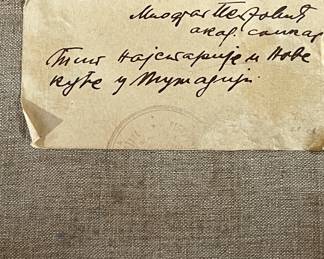 Миодраг Петровић
акад. сликар
Тип најстарије и нове
куће у Шумадији.